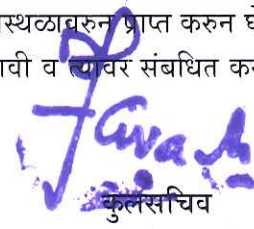 स्थळावरुन प्राप्त करुन घे
ावी व त्यावर संबधित क
कुलसचिव